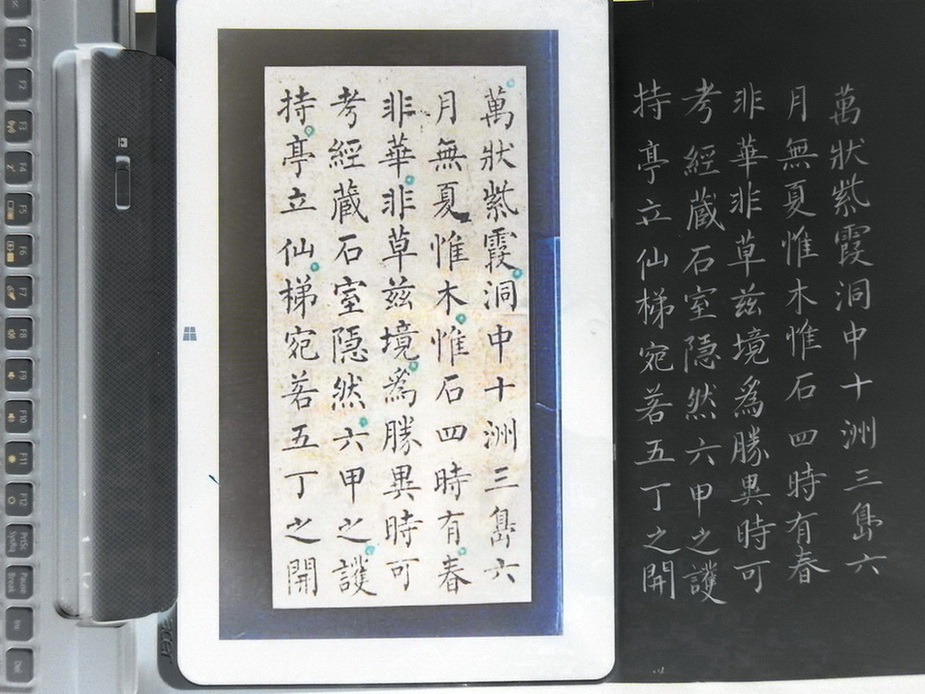 萬狀紫霞洞中十洲三島六
月無夏惟木惟石四時有春
非華非草茲境爲勝異時可
考經藏石室隱然六甲之護
持亭立仙梯宛若五丁之開
萬狀紫霞洞中十洲三島六
月無夏惟木惟石四時有春
非華非草茲境爲勝異時可
考經藏石室隱然六甲之護
持亭立仙梯宛若五丁之開
acer
F1
F2
F3
F4
F5
F6
F7
F8
F9
F10
F11
F12
PrtSc
SysRq
Pause
Break
Ins
Del